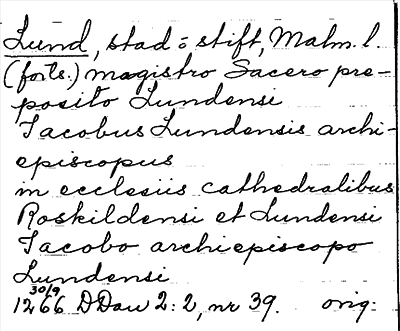 Lund, stad = stift, Malm. l.
(forts.) magistro Sacero pre-
posito Lundensi
Jacobus Lundensis archi-
episcopus
in ecclesiis cathedralibus
Roskildensi et Lundensi
Jacobo archiepiscopo
Lundensi
30/9
1266 DDan 2:2, nr 39. orig: